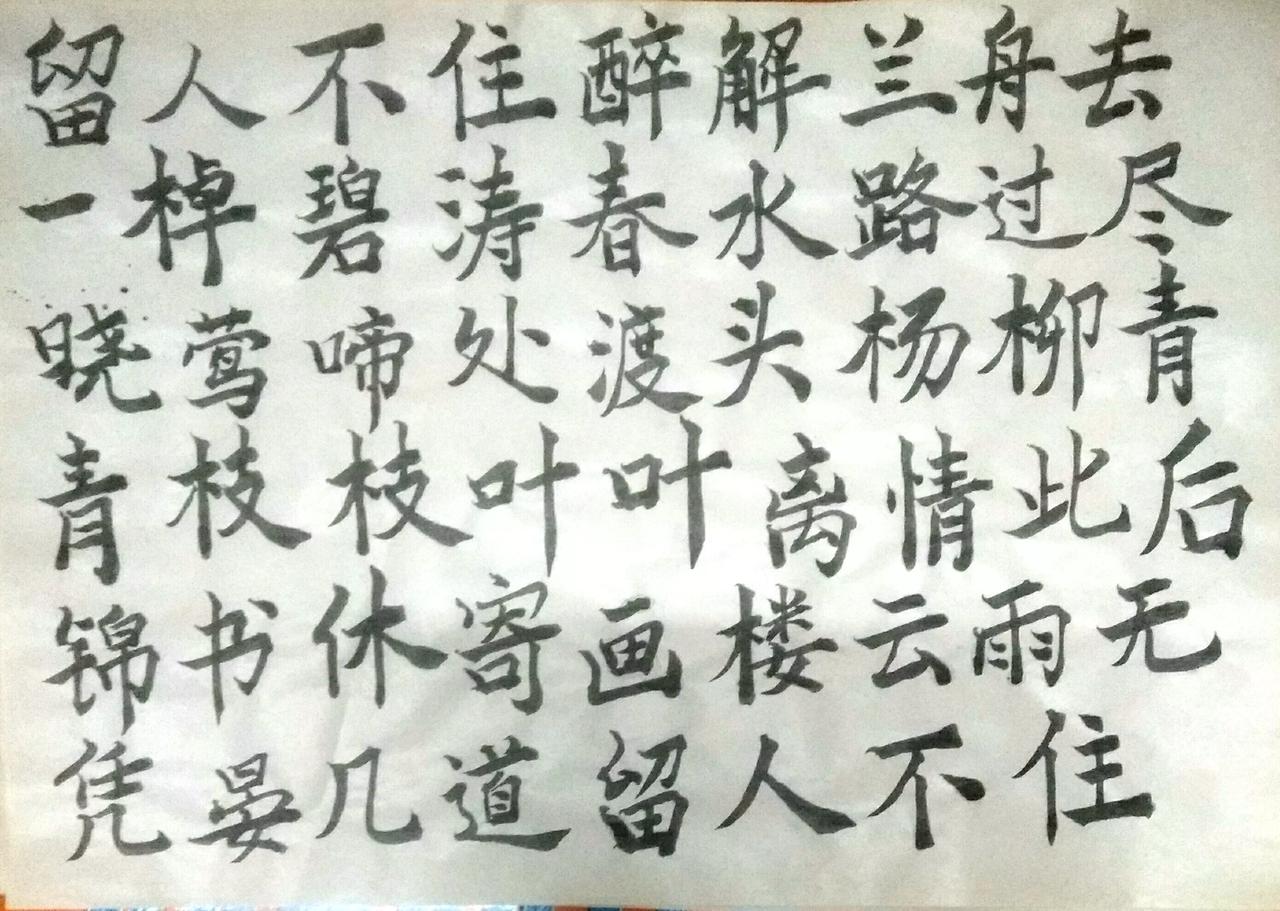 留人不住醉解兰舟去
一棹碧涛春水路过尽
晓莺啼处渡头杨柳青
青枝枝叶叶离情此后
锦书休寄画楼云雨无
凭晏几道留人不住